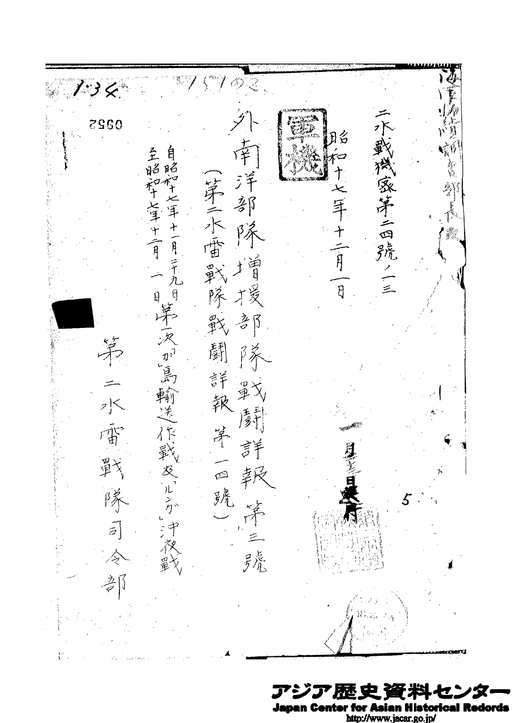 1034
151 02
0952
二水戰機密第二四號ノ一三
軍機
昭和十七年十二月一日
外南洋部隊增援部隊戰鬪詳報 第三號
(第二水雷戰隊戰鬪詳報 第一四號)
自昭和十七年十一月二十九日
至昭和十七年十二月一日
第一次「ガ」島輸送作戰及「ルンガ」沖夜戰
第二水雷戰隊司令部
5
アジア歴史資料センター
Japan Center for Asian Historical Records
http://www.jacar.go.jp/